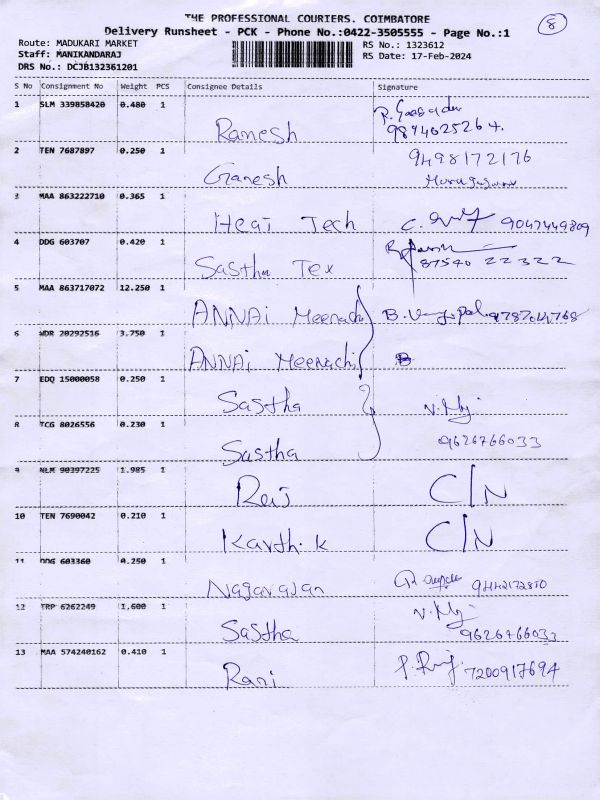 THE PROFESSIONAL COURIERS. COIMBATORE
8
Delivery Runsheet - PCK - Phone No.:0422-3505555 - Page No.:1
Route: MADUKARI MARKET
RS No.: 1323612
Staff: MANIKANDARAJ
RS Date: 17-Feb-2024
DRS No.: DCJB132361201
S No Consignment No Weight PCS Consignee Details Signature
1 SLM 339858420 0.480 1 Ramesh 9894025264.
2 TEN 7687897 0.250 1 Ganesh 9498172176
3 MAA 863222710 0.365 1 Heat Tech 9047449809
4 DDG 603707 0.420 1 Sastha Tex 87540 22322
5 MAA 863717072 12.250 1 ANNAi Meenachi B.
6 WDR 20292516 3.750 1 ANNAi Meenachi B
7 EDQ 15000058 0.250 1 Sastha
8 TCG 8026556 0.230 1 Sastha 9626766033
9 NLM 90397225 1.985 1 Raj C/N
10 TEN 7690042 0.210 1 Karthik C/N
11 DDG 603360 0.250 1 Nagarajan 9442172850
12 TRP 6262249 1,600 1 Sastha 9626766033
13 MAA 574240162 0.410 1 Rani 7200917694